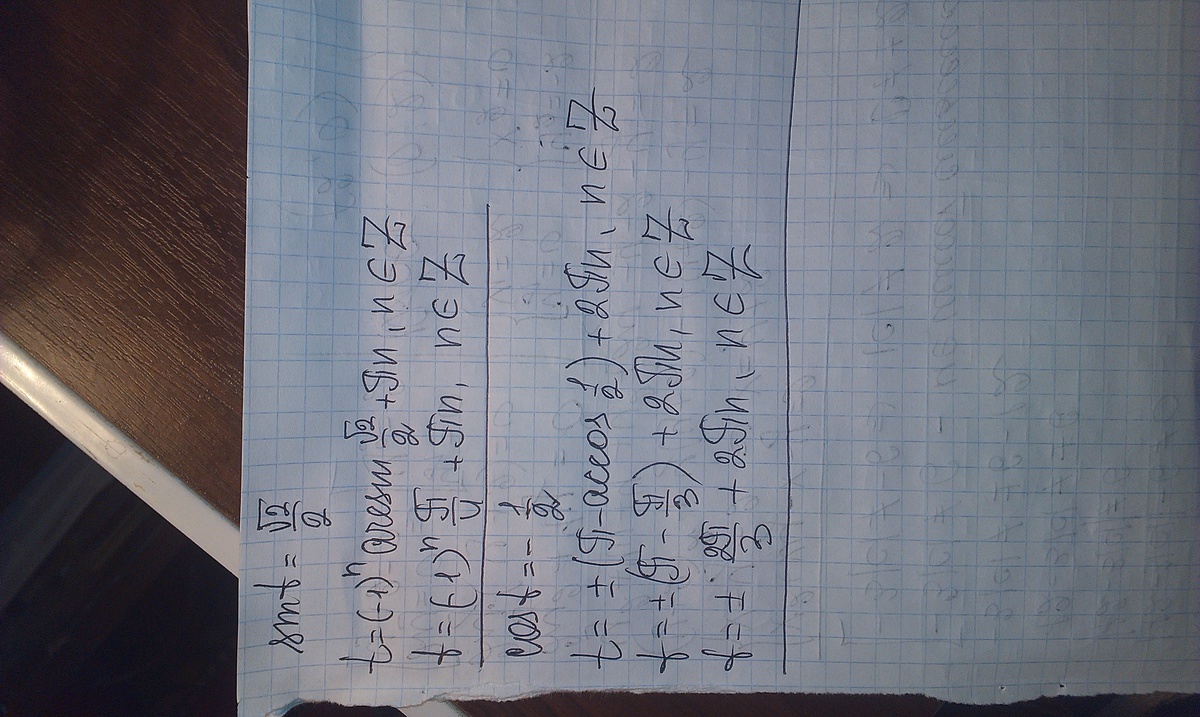 sin t = √2/2
t = (-1)ⁿ arcsin √2/2 + πn, n ∈ Z
t = (-1)ⁿ π/4 + πn, n ∈ Z
cos t = - 1/2
t = ± (π - arccos 1/2) + 2πn, n ∈ Z
t = ± (π - π/3) + 2πn, n ∈ Z
t = ± 2π/3 + 2πn, n ∈ Z